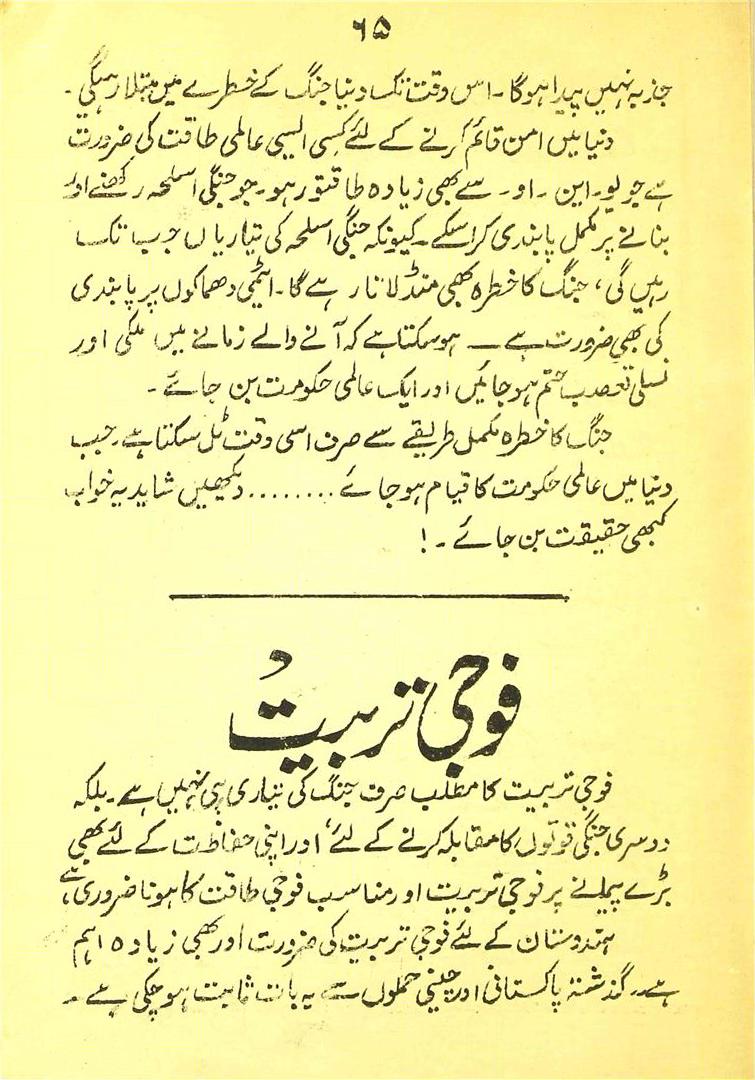 ۶۵
جذبہ نہیں پیدا ہوگا۔ اس وقت تک دنیا جنگ کے خطرے میں مبتلا رہیگی۔
دنیا میں امن قائم کرنے کے لئے کسی ایسی عالمی طاقت کی ضرورت
ہے جو یو۔ این۔ او۔ سے بھی زیادہ طاقتور ہو۔ جو جنگی اسلحہ رکھنے اور
بنانے پر مکمل پابندی کرا سکے۔ کیونکہ جنگی اسلحہ کی تیاریاں جب تک
رہیں گی، جنگ کا خطرہ بھی منڈلاتا رہے گا۔ ایٹمی دھماکوں پر پابندی
کی بھی ضرورت ہے ــ ہو سکتا ہے کہ آنے والے زمانے میں ملکی اور
نسلی تعصب ختم ہو جائیں اور ایک عالمی حکومت بن جائے۔
جنگ کا خطرہ مکمل طریقے سے صرف اسی وقت ٹل سکتا ہے۔ جب
دنیا میں عالمی حکومت کا قیام ہو جائے ........ دیکھیں شاید یہ خواب
کبھی حقیقت بن جائے۔!
فوجی تربیت
فوجی تربیت کا مطلب صرف جنگ کی تیاری ہی نہیں ہے۔ بلکہ
دوسری جنگی قوتوں کا مقابلہ کرنے کے لئے، اور اپنی حفاظت کے لئے بھی
بڑے پیمانے پر فوجی تربیت اور مناسب فوجی طاقت کا ہونا ضروری ہے،
ہندوستان کے لئے فوجی تربیت کی ضرورت اور بھی زیادہ اہم
ہے۔ گذشتہ پاکستانی اور چینی حملوں سے یہ بات ثابت ہو چکی ہے۔